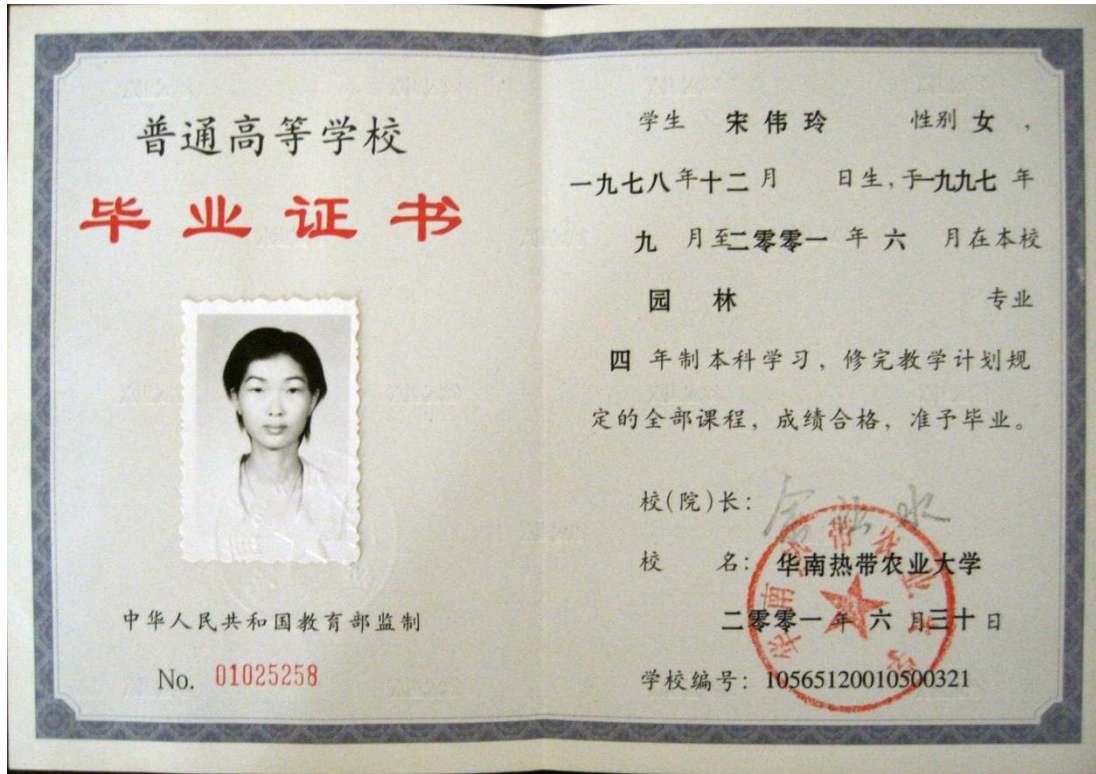 普通高等学校
毕业证书
中华人民共和国教育部监制
No. 01025258
学生 宋伟玲 性别 女,
一九七八年十二月 日生,于一九九七年
九月至二零零一年六月在本校
园林 专业
四年制本科学习，修完教学计划规
定的全部课程，成绩合格，准予毕业。
校(院)长：
校名：华南热带农业大学
二零零一年六月三十日
学校编号：10565120010500321
华南热带农业大学